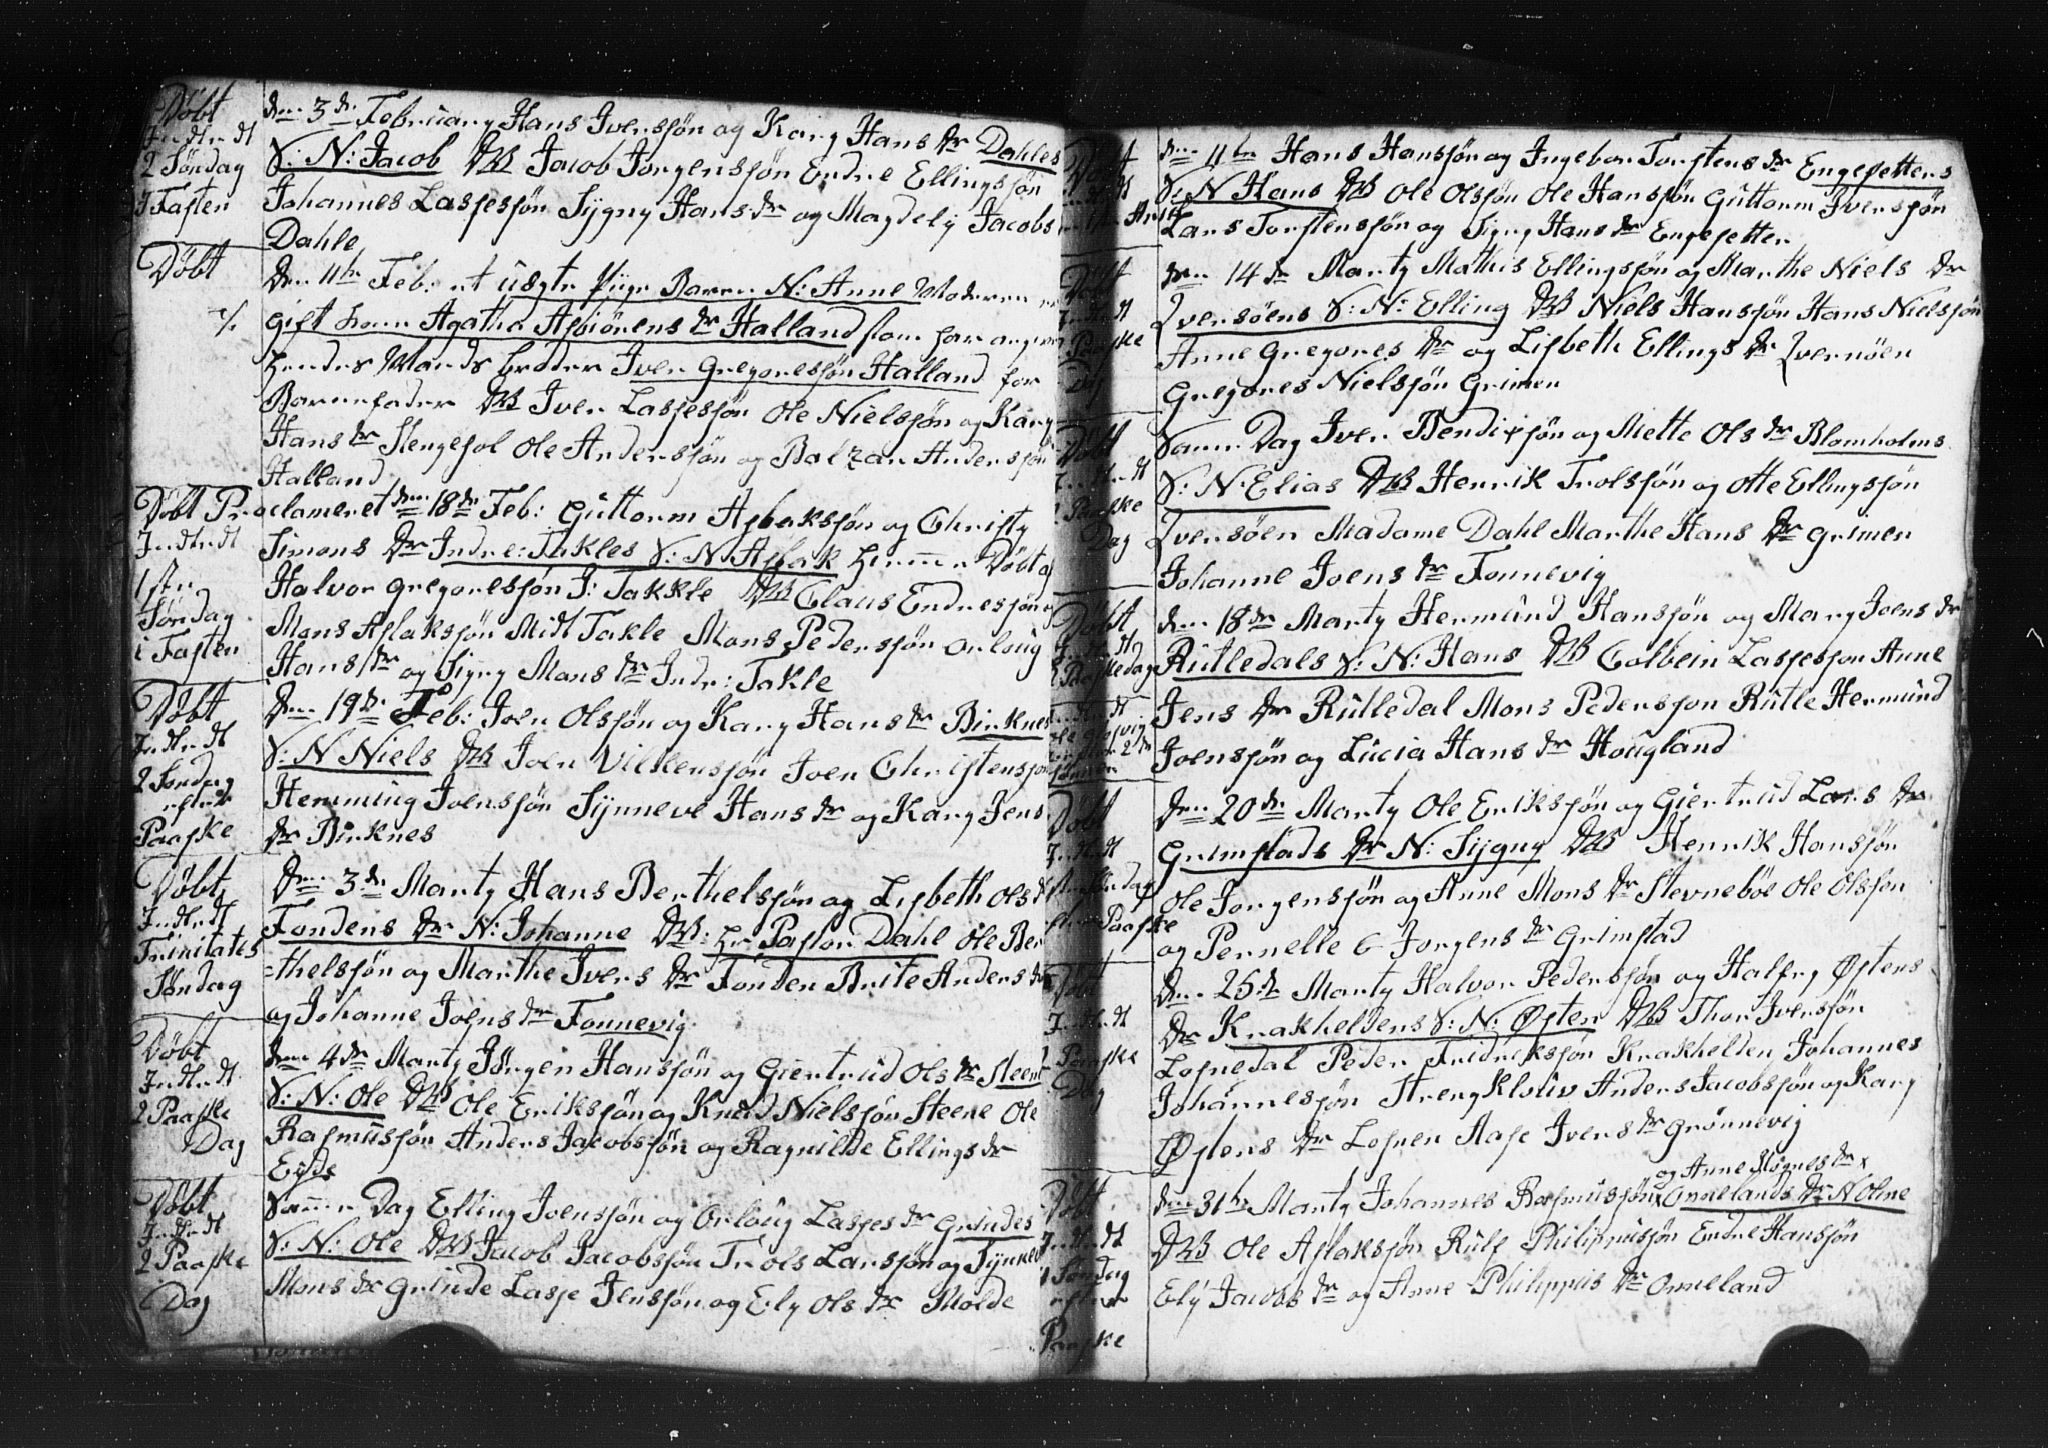 Døbt
Introdt
2 Søndag
I Fasten
den 3de February Hans Iversøn og Kary Hans dr Dahles
S: N: Jacob DW Jacob Jørgensøn Endre Ellingsøn
Johannes Lassesøn Sygny Hans dr og Magdely Jacobs
Dahle
Døbt
Den 11te Feb: et uægte Pige Barn N: Anne Moderen er
gift kone Agatha Asbiørens dr Halland som har angivet
hendes Mands broder Iver Gregoresøn Halland for
Barnefader DW Iver Lassesøn Ole Nielsøn og Kary
Hans dr Slengesol Ole Andersøn og Balzar Andersøn
Halland
Døbt Proclameret den 18de Feb: Guttorm Asbaksøn og Christy
Introdt
1ste
Søndag
i Fasten
Simons dr Indre: Takles S: N Aslak hiemme Døbt af
Halvor Gregoresøn I: Takkle DW Claus Endresøn og
Mons Aslaksøn Midt Takle Mons Pedersøn Orloug
Hans dr og Signy Mons dr Indr: Takle
Døbt
Introdt
2 Søndag
efter
Paaske
Den 19de Feb: Joen Olsøn og Kary Hans dr Birknes
S: N Niels DW Joen Villensøn Joen Christensøn
Hemming Joensøn Synneve Hans dr og Kary Jens
dr Birknes
Døbt
Introdt
Trinitates
Søndag
Den 3de Marty Hans Berthelsøn og Lisbeth Ols dr
Fondens dr N: Johanne DW: Hr Pastor Dahl Ole Ber
=thelsøn og Marthe Ivers dr Fonden Brite Anders dr
og Johanne Joens dr Fonnevig
Døbt
Introdt
2 Paaske
Dag
den 4de Marty Jørgen Hansøn og Giertrud Ols dr Steene
S: N: Ole DW Ole Eriksøn og Knud Nielsøn Steene Ole
Rasmusøn Anders Jacobsøn og Ragnilde Ellings dr
Eyde
Døbt
Introdt
2 Paaske
Dag
Samme Dag Elling Joensøn og Orloug Lasses dr Grindes
S: N: Ole DW Jacob Jacobsøn Trols Larsøn og Synneve
Mons dr Grinde Lasse Jensøn og Ely Ols dr Molde
Døbt
den 11te Hans Hansøn og Ingebor Torstens dr Engesetters
S: N Hans DW Ole Olsøn Ole Hansøn Guttorm Iversøn
Lars Torstensøn og Signy Hans dr Engesetter
Døbt
Introdt
Paaske
Dag
den 14de Marty Mathis Ellingsøn og Marthe Niels dr
Qversøens S: N: Elling DW Niels Hansøn Hans Nielsøn
Anne Gregores dr og Lisbeth Ellings dr Qvernøen
Gregores Nielsøn Grimen
Døbt
Introdt
Paaske
Dag
Samme Dag Iver Bendixsøn og Mette Ols dr Blomholms
S: N: Elias DW Henrik Trolsøn og Otte Ellingsøn
Qversøen Madame Dahl Marthe Hans dr Grimen
Johanne Joens dr Fonnevig
Døbt
Paaskedag
den 18de Marty Hermund Hansøn og Mary Joens dr
Rutledals S: N: Hans DW Colbein Lassesøn Anne
Jens dr Rutledal Mons Pedersøn Rutle Hermund
Joensøn og Lucia Hans dr Hougland
Døbt
Introdt
Søndag
efter Paaske
Den 20de Marty Ole Eriksøn og Giertrud Lars dr
Grimstads dr N: Sygny DW Henrik Hansøn
Ole Jørgensøn og Anne Mons dr Stevnebøe Ole Olsøn
og Pernelle G Jorgens dr Grimstad
Døbt
Introdt
Paaske
Dag
Den 25de Marty Halvor Pedersøn og Halfry Østens
dr Knakheldens S: N: Østen DW Thor Iversøn
Losnedal Peder Fridriksøn Knakhelden Johannes
Johannesøn Strengkloüv Anders Jacobsøn og Kary
Østens dr Losnen Aase Ivers dr Grønnevig
Døbt
Introdt
1 Søndag
efter
Paaske
og Anne Mognes dr x
den 31te Marty Johannes Rasmusøn x Onnelands dr N Oline
DW Ole Aslaksøn Rulf Philippusøn Endre Hansøn
Ely Jacobs dr og Anne Philippus dr Onneland